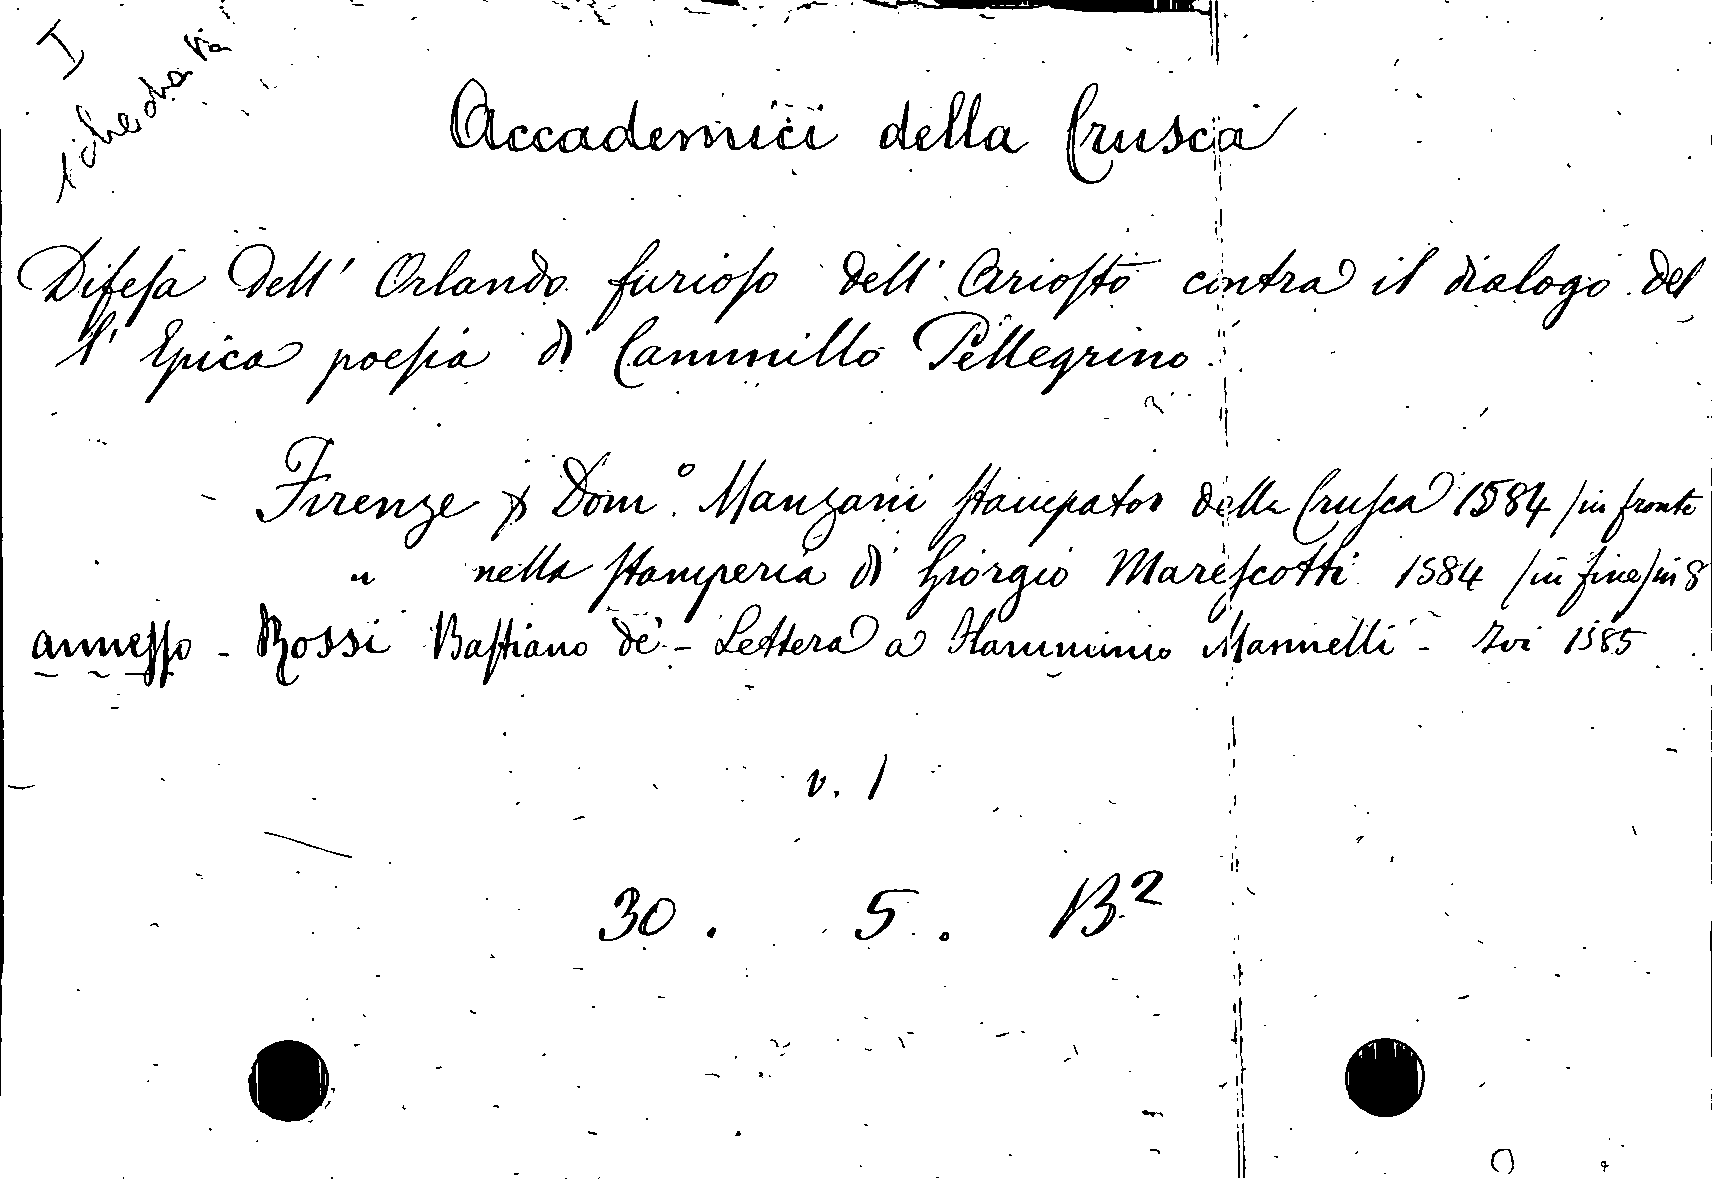 I
schedata
Accademici della Crusca
Difesa dell' Orlando furioso dell' Ariosto contra il dialogo del
l' Epica poesia di Cammillo Pellegrino
Firenze p Dom.º Manzani stampator della Crusca 1584 /in fronte
" nella stamperia di Giorgio Marescotti 1584 /in fine/ in 8
annesso - Rossi Bastiano de' - Lettera a Flamminio Mannelli - Ivi 1585
v. 1
30. 5. B²